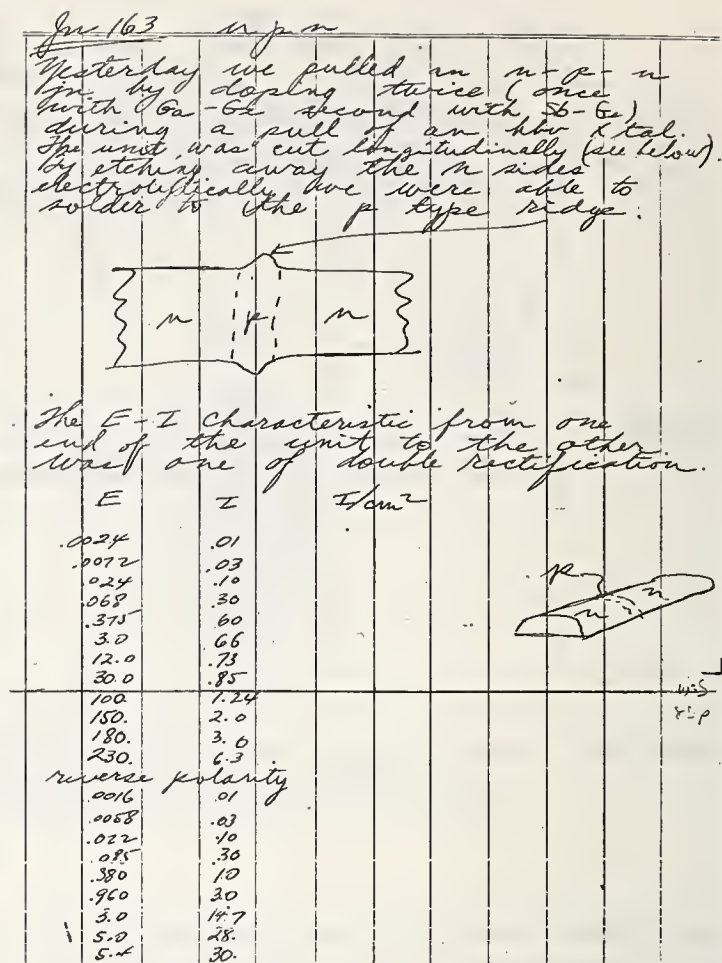 163 n p n
Yesterday we pulled an n-p-n
by doping twice (once
with Ga-Ge second with Sb-Ge)
during a pull of an hbv xtal.
The unit was cut longitudinally (see below).
By etching away the n sides
electrolytically we were able to
solder to the p type ridge.
n p n
The E-I characteristic from one
end of the unit to the other
was one of double rectification.
E I I/cm²
.0024 .01
.0072 .03
.024 .10
.068 .30
.375 .60
3.0 .66
12.0 .73
30.0 .85
100. 1.24
150. 2.0
180. 3.0
230. 6.3
p n n
reverse polarity
.0016 .01
.0058 .03
.022 .10
.085 .30
.380 1.0
.960 3.0
3.0 14.7
5.0 28.
5.4 30.